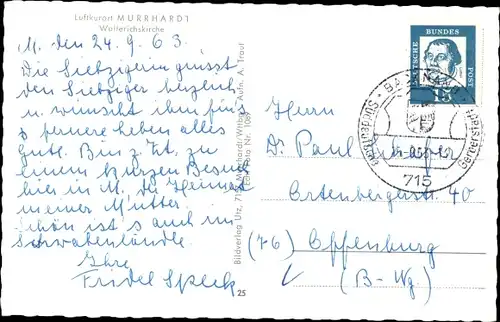 Luftkurort MURRHARDT
Walterichskirche
M. den 24. 9. 63.
Die Siebzigerin grüsst
den Siebziger herzlich
u. wünscht ihm für's
fernere Leben alles
Gute. Bin z. Zt. zu
einem kurzen Besuch
hier in M. der Heimat
meiner Mutter
schön ist's auch im
Schwabenländle.
Ihre
Fridel Speck
Bildverlag Utz, Murrhardt/Württ. Aufn. A. Trout
Foto Nr. 1089
25
DEUTSCHE BUNDESPOST
15
BACKNANG
715
Herrn
Dr. Paul
Ortenbergerstr. 40
(76) Offenburg
(B-Wg.)